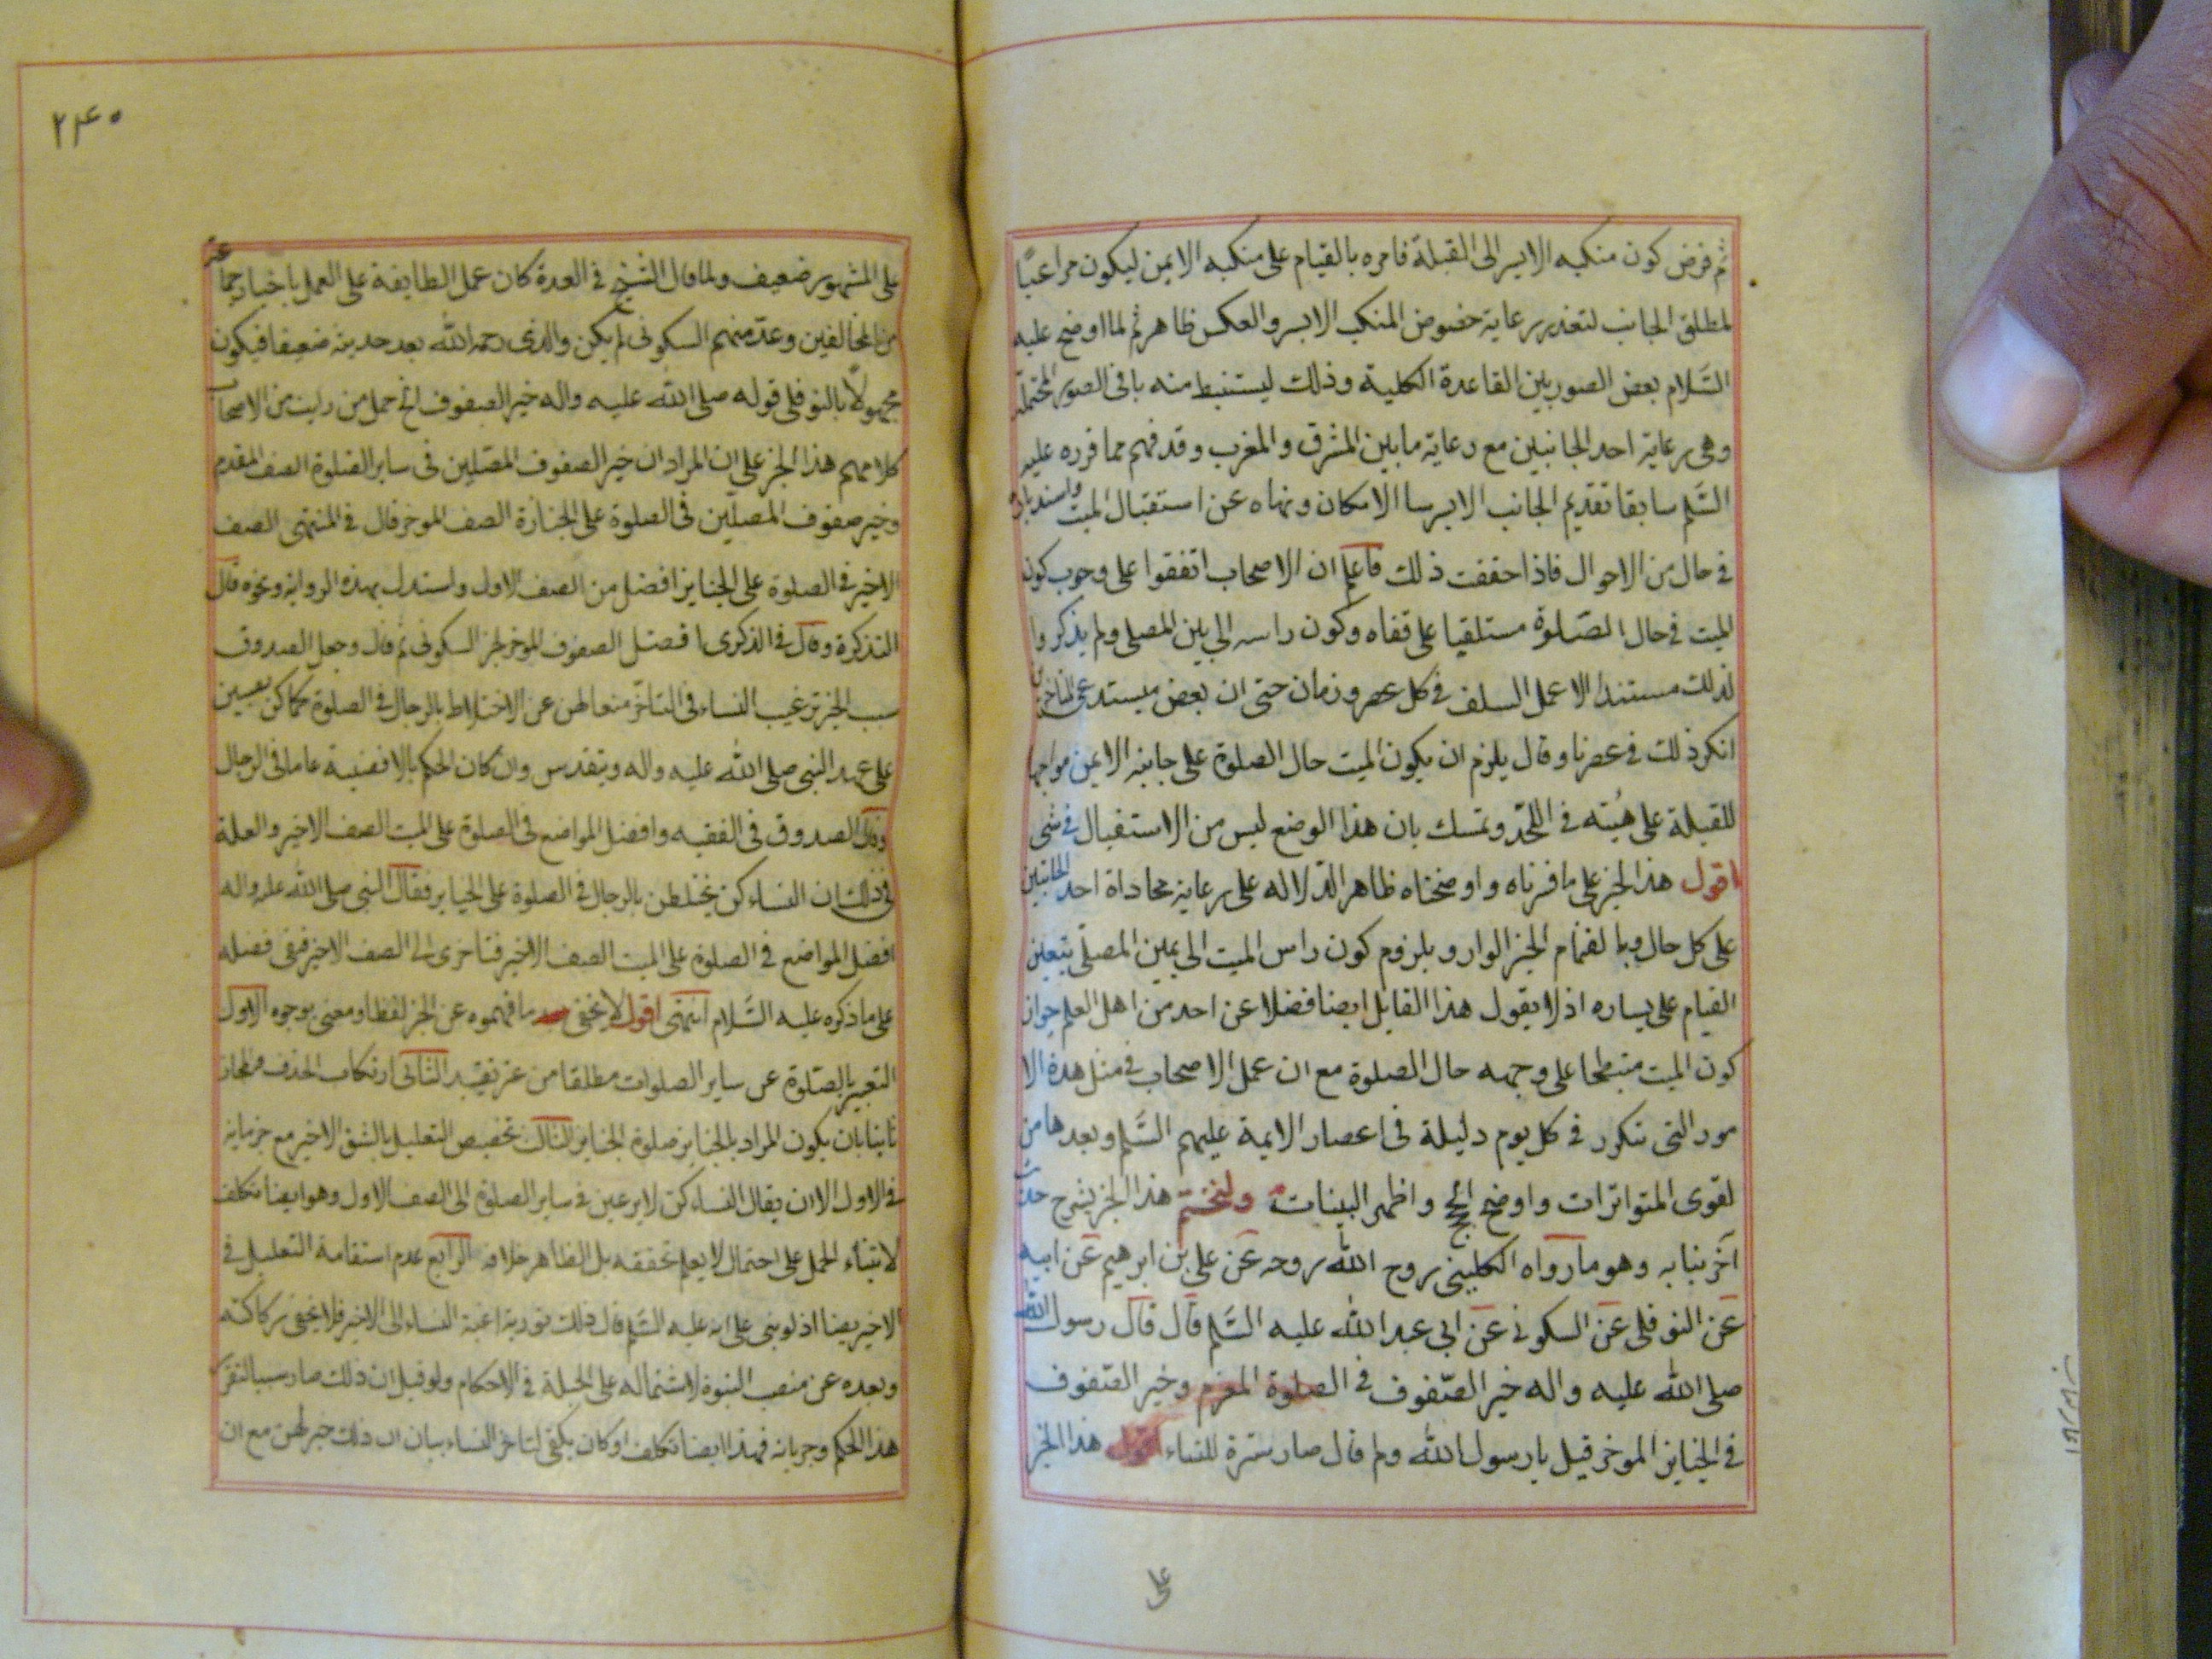 ثم فرض كون منكبه الايسر الى القبلة فامره بالقيام على منكبه الايمن ليكون مراعيًا
لمطلق الجانب لتعذر رعاية خصوص المنكب الايسر والعكس ظاهر ثم لما اوضح عليه
السَّلام بعض الصور بين القاعدة الكلية وذلك ليستنبط منه باقى الصور المحتملة
وهى رعاية احد الجانبين مع رعاية ما بين المشرق والمغرب وقد فهم مما قرره عليه
السَّلم سابقا تقديم الجانب الايسر ما الامكان ونهاه عن استقبال الميت واستدباره
فى حال من الاحوال فاذا حققت ذلك فاعلم ان الاصحاب اتفقوا على وجوب كون
الميت فى حال الصَّلوة مستلقيا على قفاه وكون راسه الى يمين المصلى ولم يذكروا
لذلك مستندا الا عمل السلف فى كل عصر وزمان حتى ان بعض المتاخرين
انكر ذلك فى عصرنا وقال يلزم ان يكون الميت حال الصلوة على جانبه الايمن مواجها
للقبلة على هيئته فى اللحد وتمسك بان هذا الوضع ليس من الاستقبال فى شى
اقول هذا الخبر على ما قررناه واوضحناه ظاهر الدّلاله على رعاية محاذاة احد الجانبين
على كل حال وبانضمام الخبر الوارد بلزوم كون راس الميت الى يمين المصلّى يتعين
القيام على يساره اذ لا يقول هذا القايل ايضا فضلا عن احد من اهل العلم جواز
كون الميت منبطحا على وجهه حال الصلوة مع ان عمل الاصحاب فى مثل هذه الا
مور التى تتكرر فى كل يوم وليلة فى اعصار الايمة عليهم السَّلم وبعدها من
اقوى المتواترات واوضح الحجج واظهر البينات ولنختتم هذا الخبر بشرح حديث
آخر يشابه وهو ما رواه الكلينى روح الله روحه عن على بن ابرهيم عن ابيه
عن النوفلى عن السكونى عن ابى عبد الله عليه السَّلم قال قال رسول الله
صلى الله عليه واله خير الصّفوف فى الصلوة المقدم وخير الصّفوف
فى الجنايز الموخر قيل يا رسول الله ولم قال صار سترة للنساء اقول هذا الخبر
على
٢٤٠
على المشهور ضعيف ولما قال الشيخ فى العدة كان عمل الطايفة على العمل باخبار جماعة
من المخالفين وعدّ منهم السكونى لم يكن والدى رحمه الله يعد حديثه ضعيفا فيكون
مجهولاً بالنوفلى قوله صلى الله عليه واله خير الصفوف الخ حمل من رايت من الاصحاب
كلامهم هذا الخبر على ان المراد ان خير الصفوف المصلين فى ساير الصلوة الصف المقدم
وخير صفوف المصلّين فى الصلوة على الجنازة الصف الموخر قال فى المنتهى الصف
الاخير فى الصلوة على الجنايز افضل من الصف الاول واستدل بهذه الرواية ونحوه قال
التذكرة وقال فى الذكرى افضل الصفوف الموخر لخبر السكونى ثم قال وجعل الصدوق
سبب الخبر ترغيب النساء فى التاخّر منعا لهن عن الاختلاط بالرجال فى الصلوة كما كن يصلين
على عهد النبى صلى الله عليه واله ويتقدمن وان كان الحكم بالافضلية عاما فى الرجال
وقال الصدوق فى الفقيه وافضل المواضع فى الصلوة على الميت الصف الاخير والعلة
فى ذلك ان النساء كن يختلطن بالرجال فى الصلوة على الجنايز فقال النبى صلى الله عليه واله
افضل المواضع فى الصلوة على الميت الصف الاخير فتاخرن الى الصف الاخير فبقى فضله
على ما ذكره عليه السَّلام انتهى اقول لا يخفى بعد ما فهموه عن الخبر لفظا ومعنى بوجوه الاول
التعبير بالصّلوة عن ساير الصلوات مطلقا من غير تقييد الثانى ارتكاب الحذف والمجاز
ثانيا بان يكون المراد بالجنايز صلوة الجنايز الثالث تخصيص التعليل بالشق الاخير مع جريانه
فى الاول الا ان يقال النساء كن لا يرغبن فى ساير الصلوة الى الصف الاول وهو ايضا تكلف
لابتناء الحمل على احتمال لا يعلم تحققه بل الظاهر خلافه الرابع عدم استقامة التعليل فى
الاخير ايضا اذ لو بنى على انه عليه السَّلم قال ذلك تورية لرغبة النساء الى الاخير فلا يخفى ركاكته
وبعده عن منصب النبوة لاشتماله على الحيلة فى الاحكام ولو قيل ان ذلك صار سببا لتقرر
هذا الحكم وجريانه فهذا ايضا تكلف وكان يكفى لتاخر النساء بيان ان ذلك خير لهن مع ان